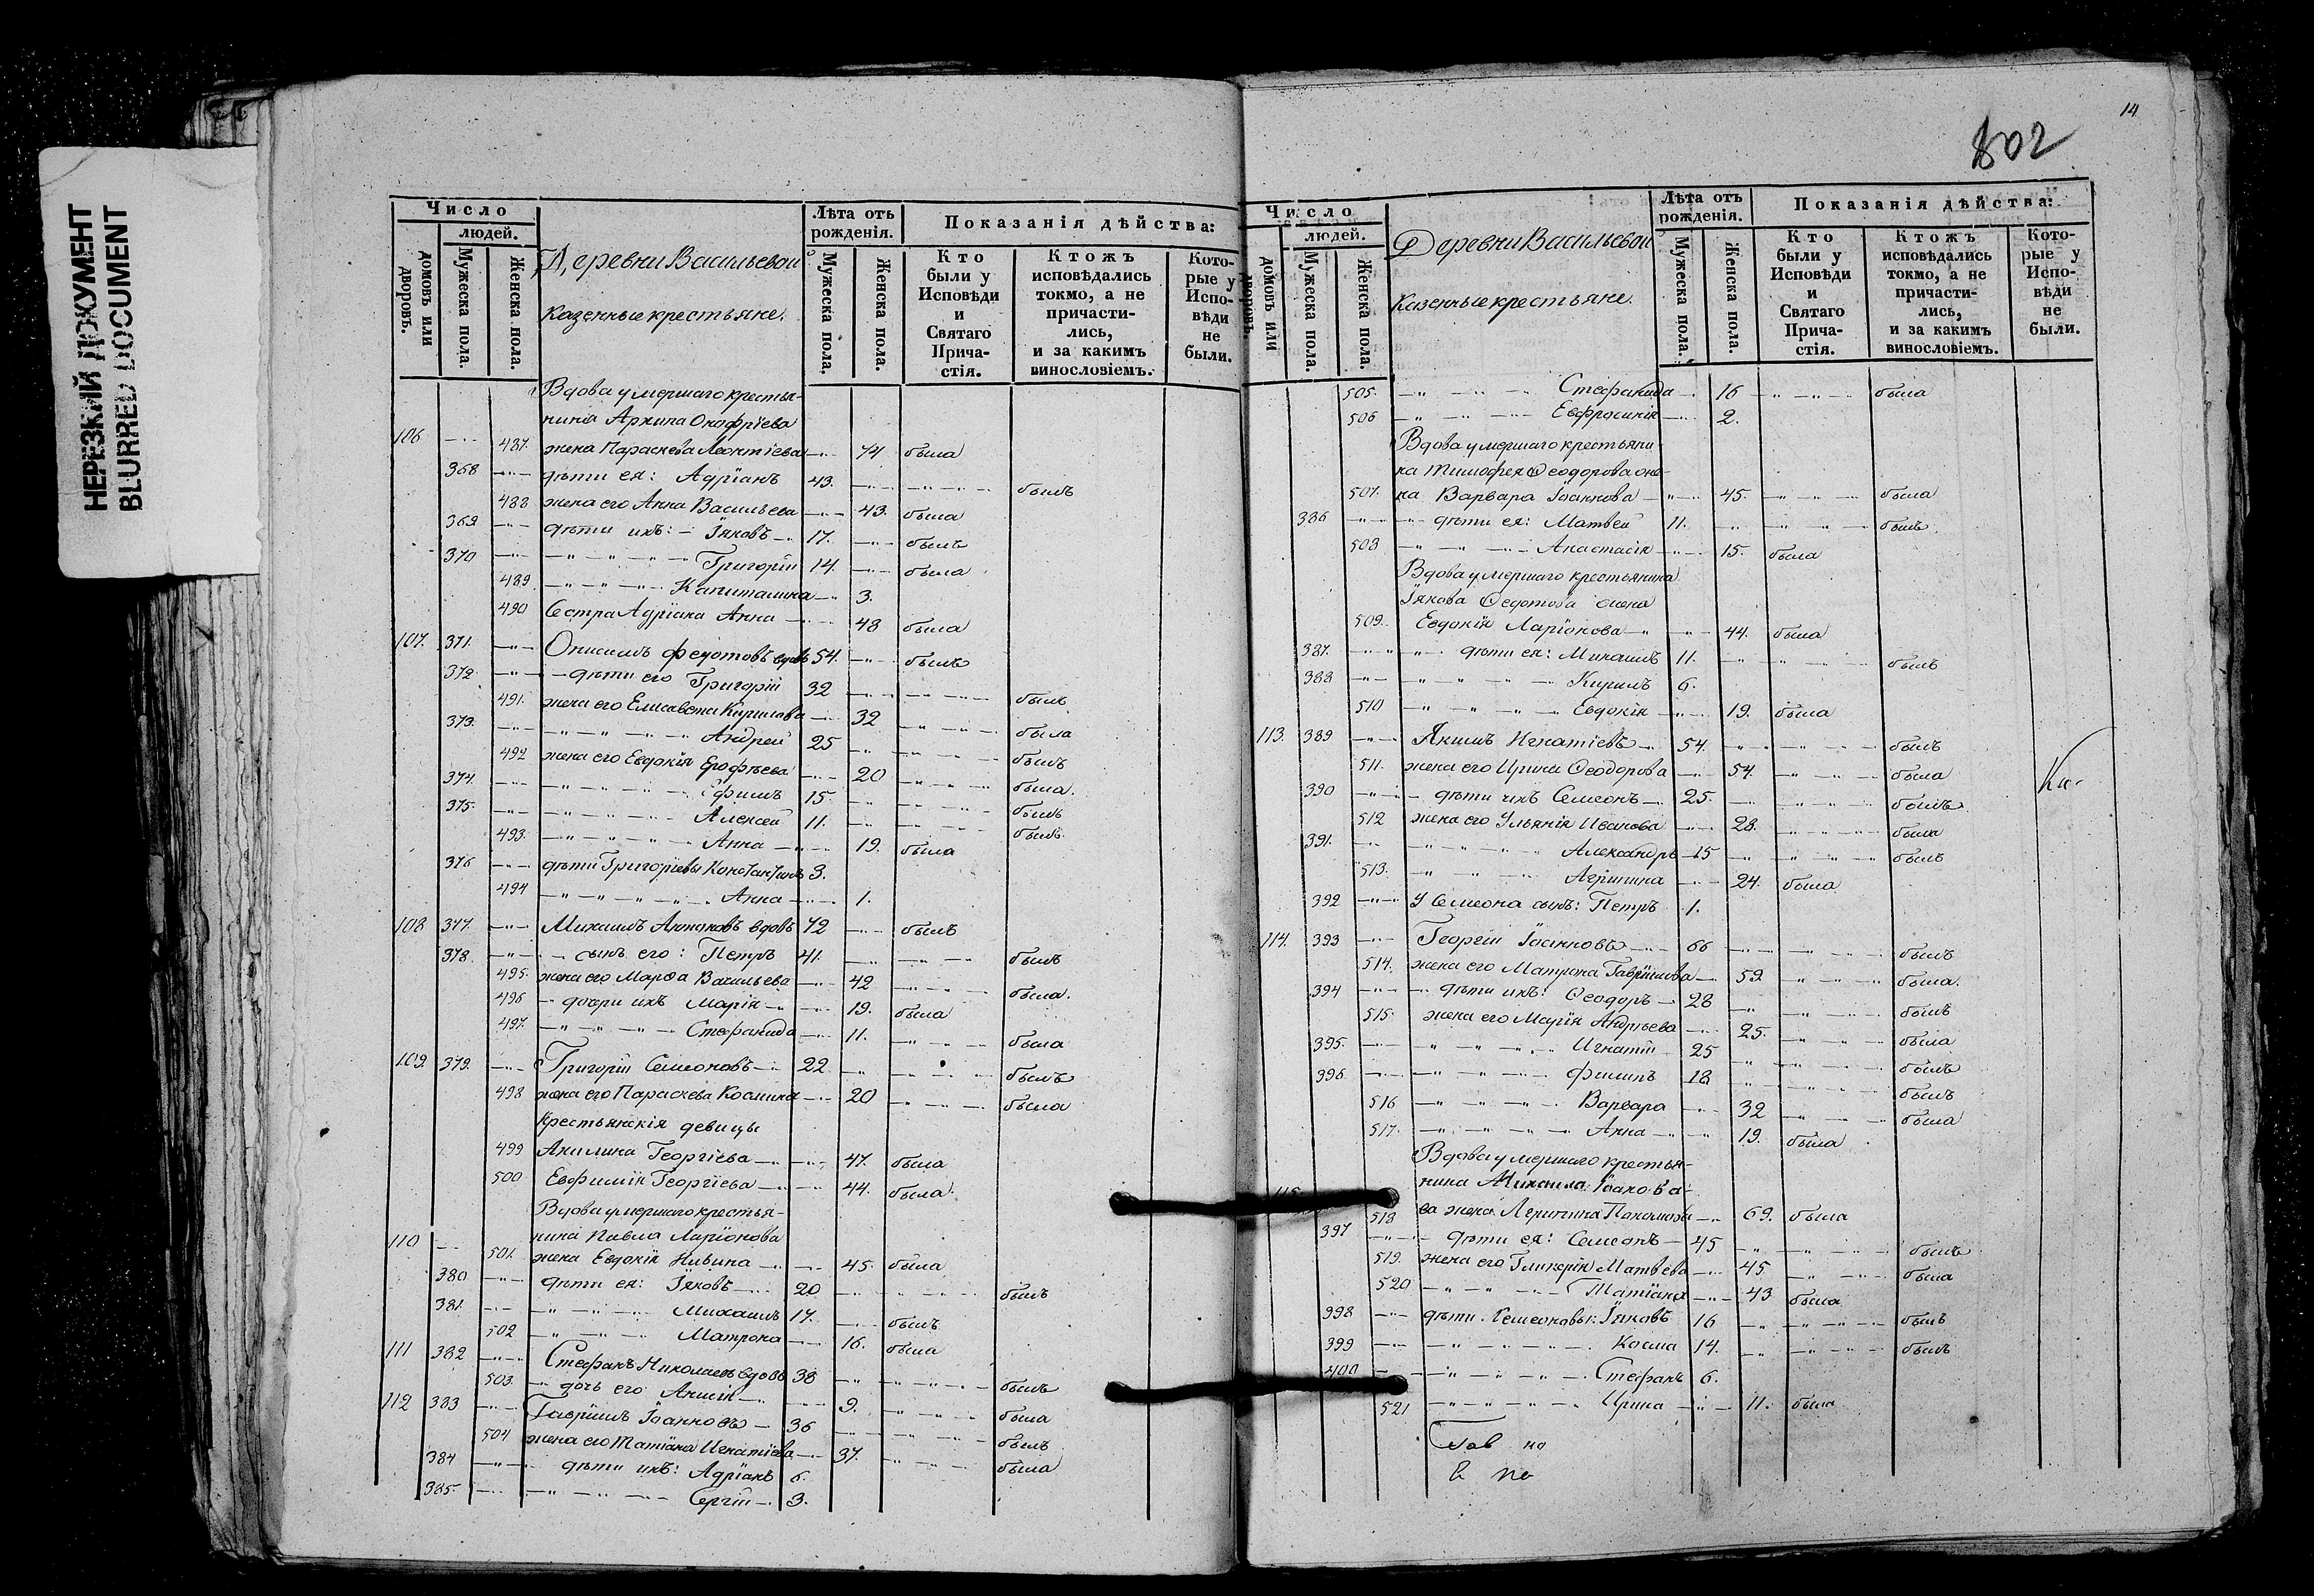 НЕРЕЗКИЙ ДОКУМЕНТ
BLURRED DOCUMENT
Число
людей.
домовъ или дворовъ.
Мужеска пола.
Женска пола.
Деревни Васильевой
казенные крестьяне.
Лѣта отъ рожденія.
Мужеска пола.
Женска пола.
Показанія дѣйства:
Кто были у Исповѣди и Святаго Прича-стія.
Ктожъ исповѣдались токмо, а не причасти-лись, и за какимъ винословіемъ.
Кото-рые у Испо-вѣди не были.
Вдова умершаго крестья-
нина Архипа Онофріева
106 487. жена Параскева Леонтіева 74 была
368 дѣти ея: Адріанъ 43. былъ
488 жена его Анна Васильева 43. была
369 дѣти ихъ: Іяковъ 17. былъ
370 Григорій 14. была
489. Капиталина 3.
490 Сестра Адріана Анна 48 была
107. 371. Онисимъ Федотовъ вдовъ 54. былъ
372. дѣти его Григорій 32 былъ
491. жена его Елисавета Кирилова 32 была
373. Андрей 25 былъ
492 жена его Евдокія Ерофѣева 20 была.
374. Ефимъ 15. былъ
375. Алексей 11. былъ
493. Анна 19. была
376 дѣти Григоріевы Константинъ 3.
494 Анна 1.
108 377. Михаилъ Антоновъ вдовъ 72 былъ
378. сынъ его: Петръ 41. былъ
495. жена его Марѳа Васильева 42 была.
496 дочери ихъ Марія 19. была
497. Стефанида 11. была
109. 379. Григорій Семеоновъ 22 былъ
498 жена его Параскева Космина 20 была
Крестьянскія девицы
499 Акилина Георгіева 47. была
500 Евфимія Георгіева 44. была.
Вдова умершаго крестья-
нина Павла Ларіонова
110 501. жена Евдокія 45. была
380 дѣти ея: Іяковъ 20 былъ
381. Михаилъ 17. былъ
502 Матрона 16. была
111 382 Стефанъ Николаевъ вдовъ 38 былъ
503. дочь его 9. была
112 383 Гавріилъ Іоанновъ 36 былъ
504 жена его Татіана Игнатіева 37. была
384 дѣти ихъ: Адріанъ 6.
385. Сергій 3.
14
802
Число
людей.
домовъ или дворовъ.
Мужеска пола.
Женска пола.
Деревни Васильевой
Казенные крестьяне.
Лѣта отъ рожденія.
Мужеска пола.
Женска пола.
Показанія дѣйства:
Кто были у Исповѣди и Святаго Прича-стія.
Ктожъ исповѣдались токмо, а не причасти-лись, и за какимъ винословіемъ.
Кото-рые у Испо-вѣди не были.
505. Стефанида 16 была
506 Евфросинія 2.
Вдова умершаго крестьяни-
на Тимофея Ѳеодорова оже-
507. на Варвара Іоаннова 45. была
386 дѣти ея: Матвей 11. былъ
508 Анастасія 15. была
Вдова умершаго крестьянина
Іякова Ѳедотова жена
509. Евдокія Ларіонова 44. была
387. дѣти ея: Михаилъ 11. былъ
388 Кирилъ 6.
510 Евдокія 19. была
113. 389 Якимъ Игнатіевъ 54. былъ
511. жена его Ирина Ѳеодорова 54. была
390 дѣти ихъ Семеонъ 25. былъ
512 жена его Ульянія Иванова 28. была
391. Александръ 15 былъ
513. Агрипина 24. была
392 У Семеона сынъ: Петръ 1.
114. 393 Георгій Іоанновъ 66 былъ
514. жена его Матрона Гавріилова 59 была.
394 дѣти ихъ: Ѳеодоръ 28 былъ
515. жена его Марія Андрѣева 25. была
395. Игнатій 25 былъ
396. Филипъ 18 былъ
516 Варвара 32 была
517. Анна 19. была
Вдова умершаго крестья-
нина Михаила Іаков
115. 518 ва жена Агрипина 69. была
397 дѣти ея: Семеонъ 45 былъ
519. жена его Гликерія Матвѣева 45 была
520 Татіана 43 была
398 дѣти Семеоновы: Іяковъ 16 былъ
399 Косма 14. былъ
400 Стефанъ 6.
521 Ирина 11. была